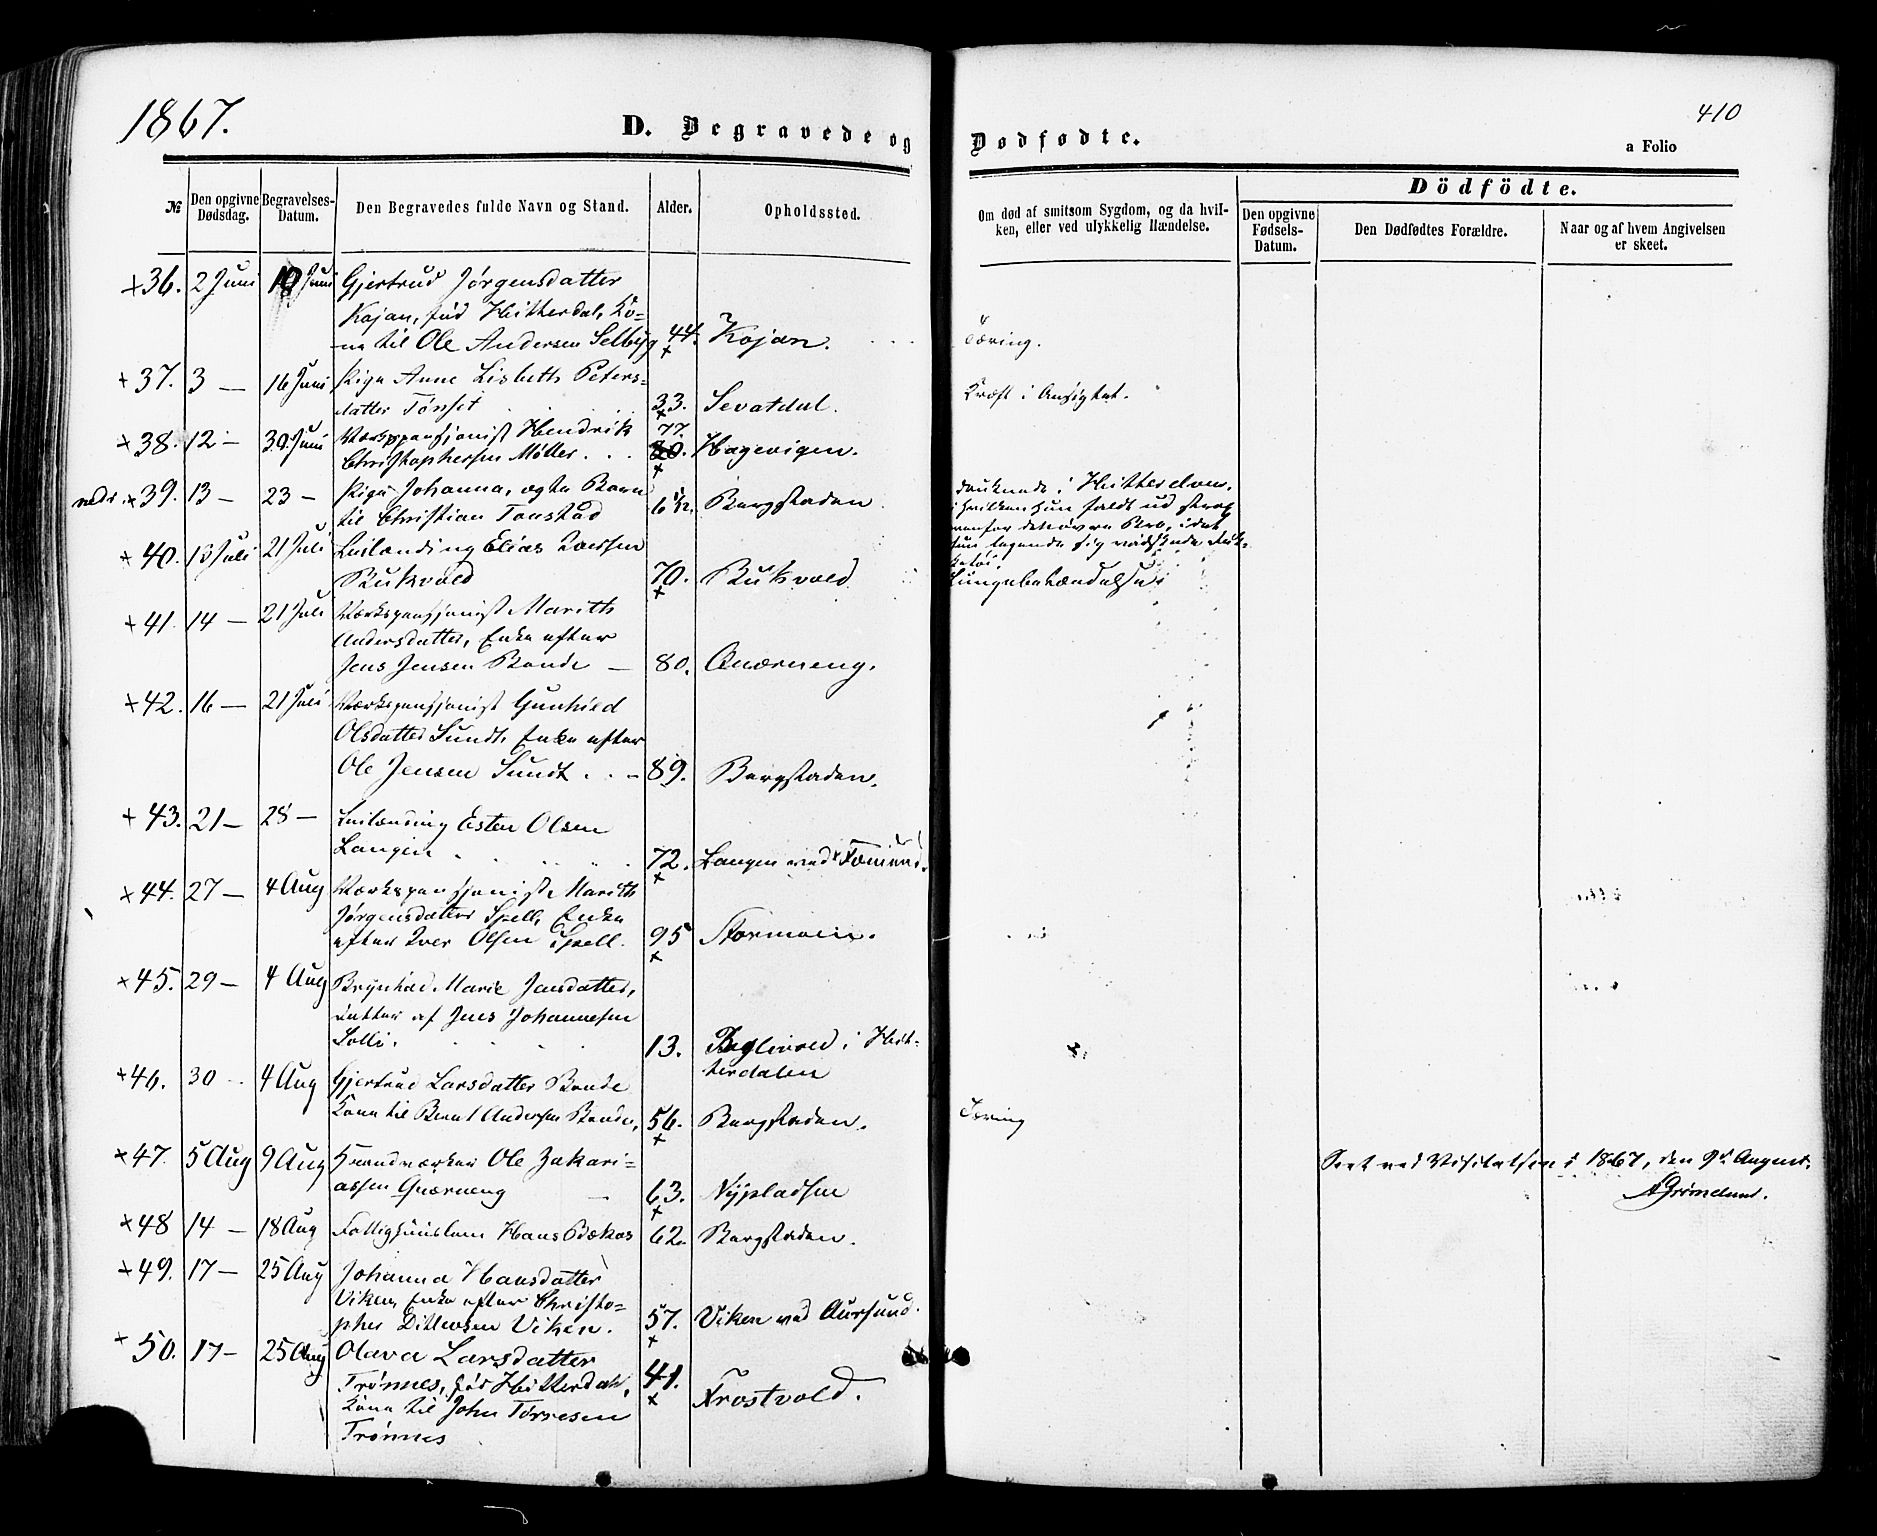 1867.
D. Begravede og Dødfødte.
410
a Folio
№
Den opgivne Dødsdag.
Begravelses-Datum.
Den Begravedes fulde Navn og Stand.
Alder.
Opholdssted.
Om død af smitsom Sygdom, og da hvil-
ken, eller ved ulykkelig Hændelse.
Dödfödte.
Den opgivne Fødsels-Datum.
Den Dødfødtes Forældre.
Naar og af hvem Angivelsen er skeet.
+36. 2 Juni Juni Gjertrud Jørgensdatter
Kojan, fød Hitterdal, Ko-
ne til Ole Andersen Selbyg 44. Kojan. Tæring.
+37. 3 — 16 Juni Pige Anne Lisbeth Peters-
datter Tønset 33. Sevatdal. Kræft i Ansigtet.
+38. 12 — 30 Juni Værkspensjonist Hendrik 77.
Christophersen Møller. 80. Hagevigen.
+39. 13 — 23 — Pige Johanna, ægte Barn
til Christian Tonstad 6 Bergstaden druknede i Hitterelven,
i hvilken hun faldt ud strax
ovenfor den øvre Bro, idet
hun legende sig
+40. 13 Juli 21 Juli Leilænding Elias Larsen
Bukvold 70. Bukvold Lungebetændelse.
+41. 14 — 21 Juli Værkspensjonist Marith
Andersdatter, Enke efter
Jens Jensen Bonde — 80. Qværneng.
+42. 16 — 21 Juli Værkspensjonist Gunhild
Olsdatter Sundt, Enke efter
Ole Jensen Sundt 89. Bergstaden.
+43. 21 — 28 — Leilænding Esten Olsen
Langen 72. Langen ved Fæmund.
+44. 27 — 4 Aug Værkspensjonist Marith
Jørgensdatter Spell, Enke
efter Iver Olsen Spell. 95 Stormoen.
+45. 29 — 4 Aug Brynhild Marie Jensdatter,
datter af Jens Johannesen
Solli. 13. i Hit-
terdalen
+46. 30 4 Aug Gjertrud Larsdatter Bonde
Kone til Bernt Andersen Bonde, 56. Bergstaden. Tæring
+47. 5 Aug 9 Aug Haandværker Ole Zakari-
assen Qværneng 63. Nypladsen
Seet ved Visitatsen i 1867, den 9de August.
AGrimelund.
+48 14 — 18 Aug Fattiglem Hans Bækos 62 Bergstaden.
+49. 17 — 25 Aug Johanna Hansdatter
Viken, Enke efter Christo-
pher Ditlevsen Viken. 57. Viken ved Aursund.
+50. 17 — 25 Aug Olava Larsdatter
Trønnes, fød Hitterdal,
Kone til John Tørresen 41. Frostvold.
Trønnes